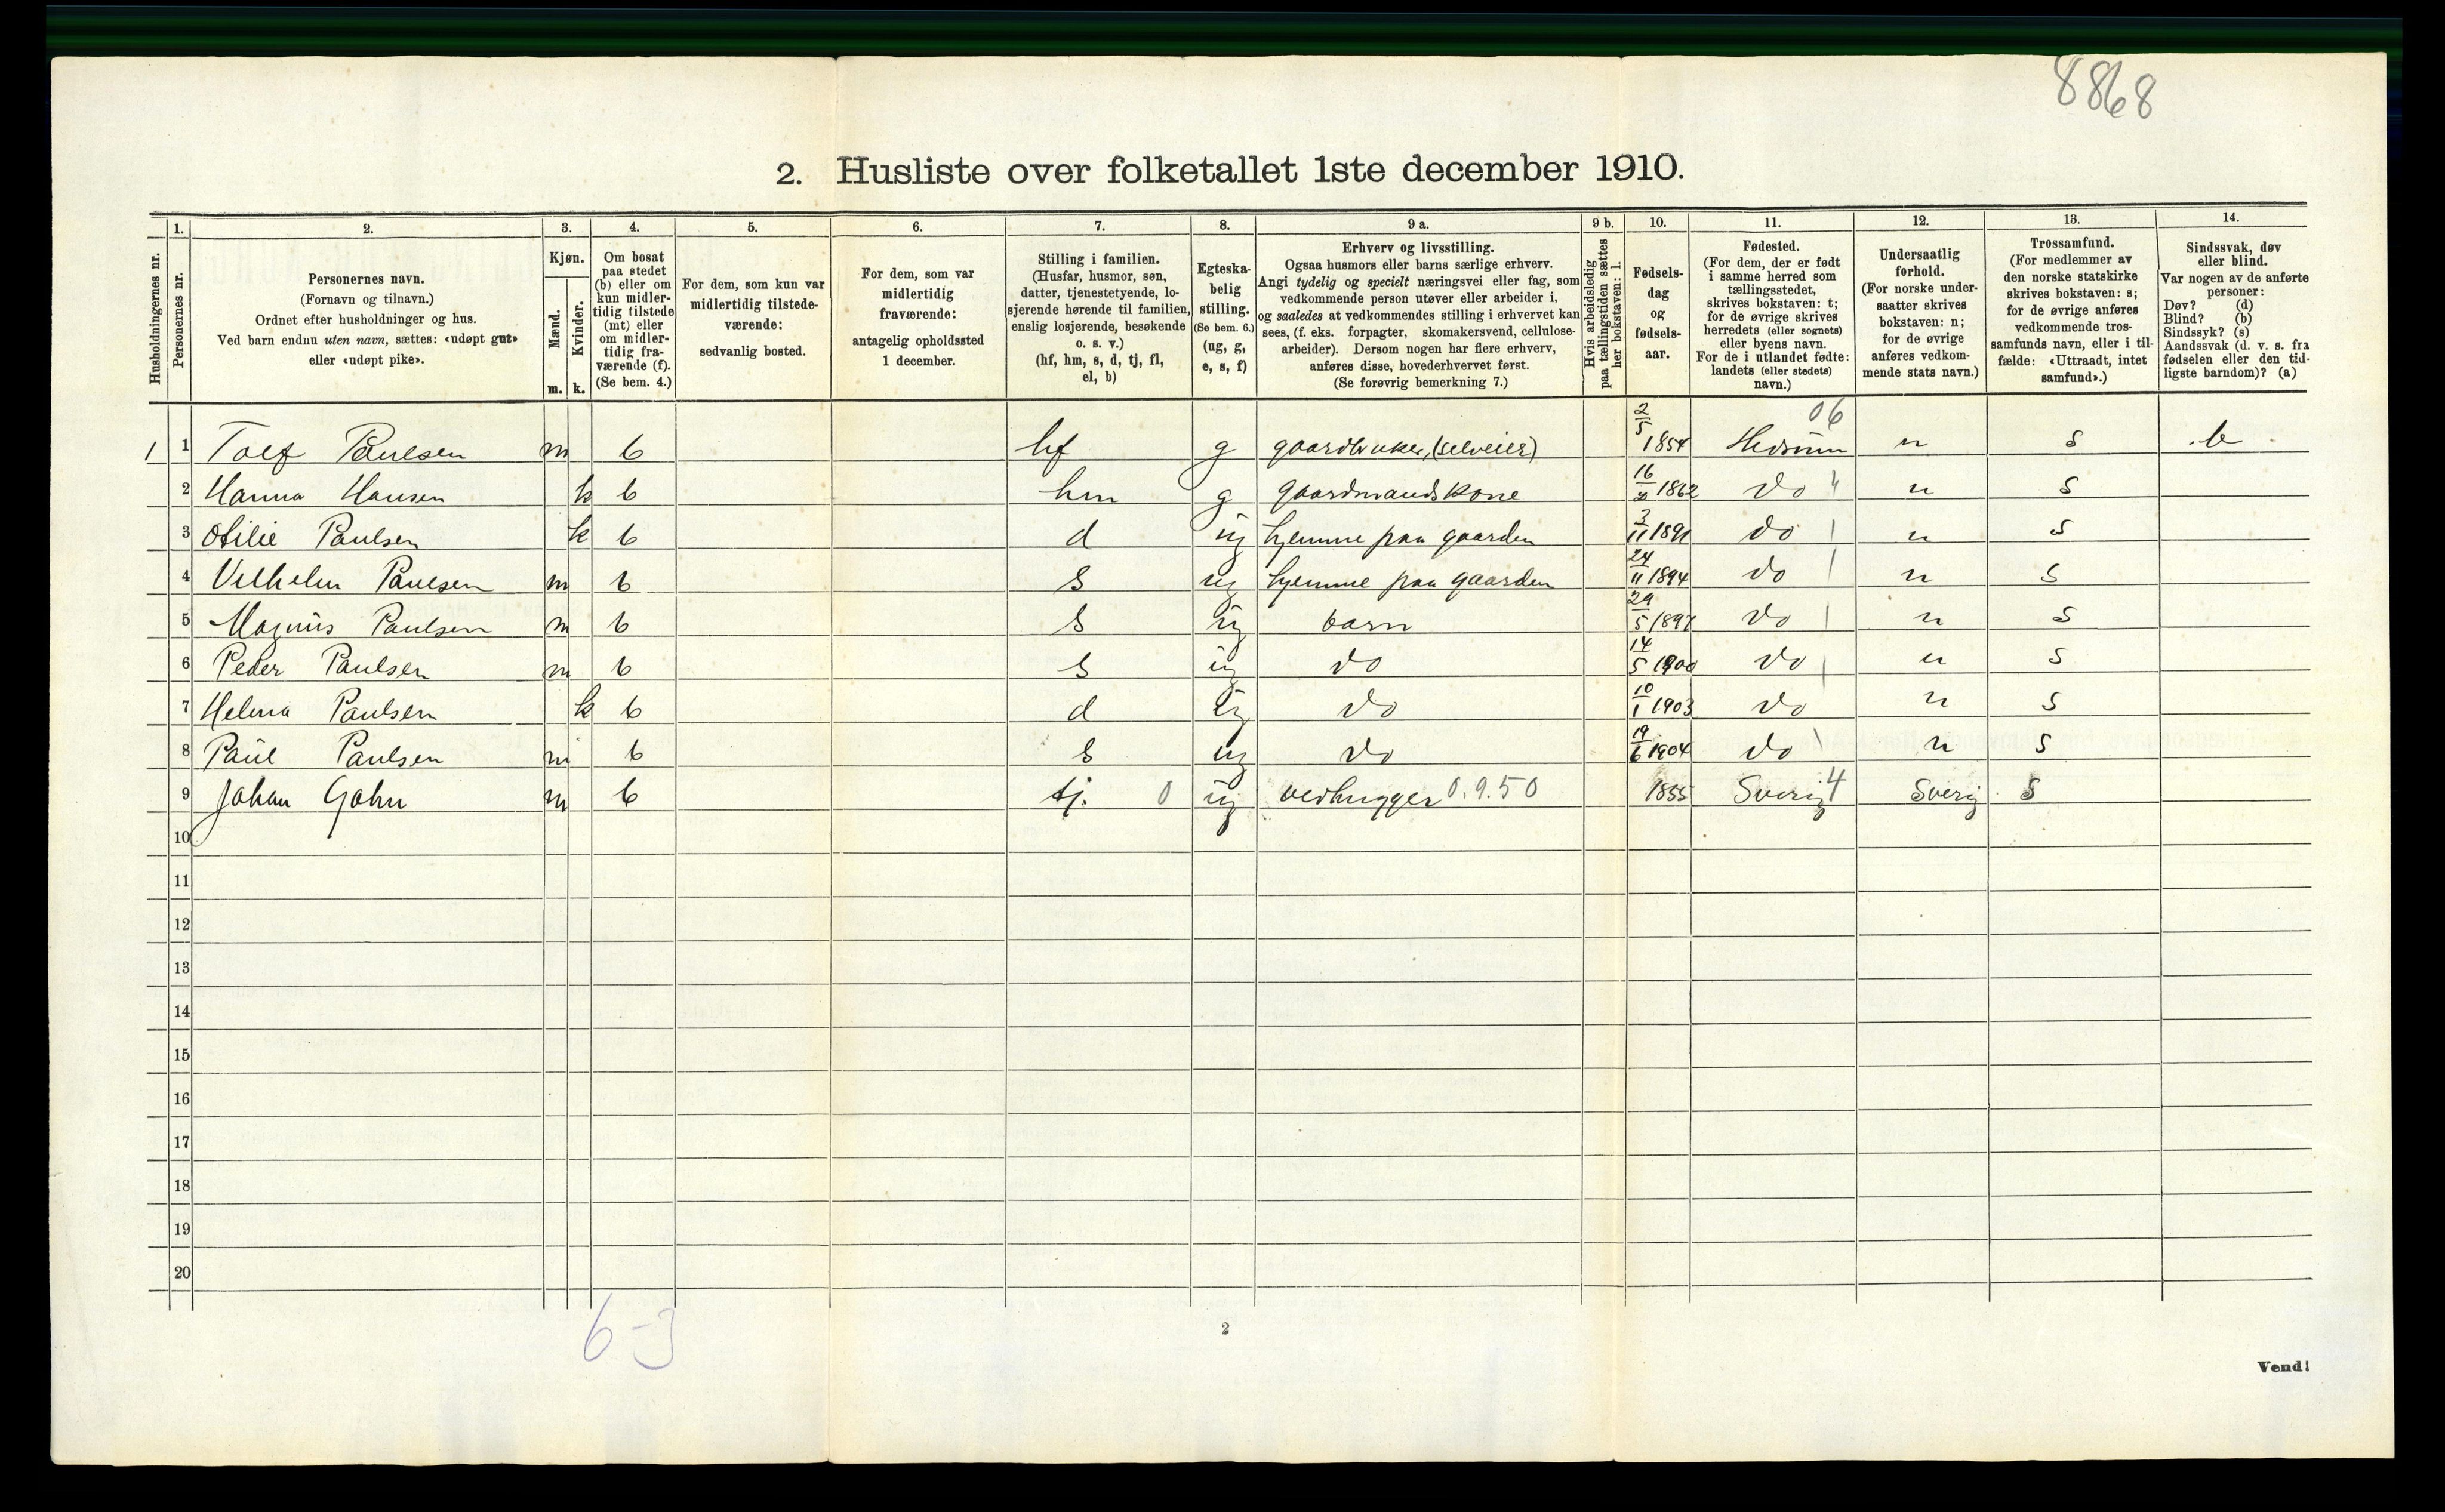 8868
2. Husliste over folketallet 1ste december 1910.
Husholdningernes nr.
1.
Personernes nr.
2.
Personernes navn.
(Fornavn og tilnavn.)
Ordnet efter husholdninger og hus.
Ved barn endnu uten navn, sættes: «udøpt gut»
eller «udøpt pike».
3.
Kjøn.
Mænd.
Kvinder.
m. k.
4.
Om bosat
paa stedet
(b) eller om
kun midler-
tidig tilstede
(mt) eller
om midler-
tidig fra-
værende (f).
(Se bem. 4.)
5.
For dem, som kun var
midlertidig tilstede-
værende:
sedvanlig bosted.
6.
For dem, som var
midlertidig
fraværende:
antagelig opholdssted
1 december.
7.
Stilling i familien.
(Husfar, husmor, søn,
datter, tjenestetyende, lo-
sjerende hørende til familien,
enslig losjerende, besøkende
o. s. v.)
(hf, hm, s, d, tj, fl,
el, b)
8.
Egteska-
belig
stilling.
(Se bem. 6.)
(ug, g,
e, s, f)
9 a.
Erhverv og livsstilling.
Ogsaa husmors eller barns særlige erhverv.
Angi tydelig og specielt næringsvei eller fag, som
vedkommende person utøver eller arbeider i,
og saaledes at vedkommendes stilling i erhvervet kan
sees, (f. eks. forpagter, skomakersvend, cellulose-
arbeider). Dersom nogen har flere erhverv,
anføres disse, hovederhvervet først.
(Se forøvrig bemerkning 7.)
9 b.
Hvis arbeidsledig
paa tællingstiden sættes
her bokstaven: l.
10.
Fødsels-
dag
og
fødsels-
aar.
11.
Fødested.
(For dem, der er født
i samme herred som
tællingsstedet,
skrives bokstaven: t;
for de øvrige skrives
herredets (eller sognets)
eller byens navn.
For de i utlandet fødte:
landets (eller stedets)
navn.)
12.
Undersaatlig
forhold.
(For norske under-
saatter skrives
bokstaven: n;
for de øvrige
anføres vedkom-
mende stats navn.)
13.
Trossamfund.
(For medlemmer av
den norske statskirke
skrives bokstaven: s;
for de øvrige anføres
vedkommende tros-
samfunds navn, eller i til-
fælde: «Uttraadt, intet
samfund».)
14.
Sindssvak, døv
eller blind.
Var nogen av de anførte
personer:
Døv? (d)
Blind? (b)
Sindssyk? (s)
Aandssvak (d. v. s. fra
fødselen eller den tid-
ligste barndom)? (a)
06
1 1 Tolf Paulsen m b hf g gaardbruker, (selveier) 2/5 1854 n s b
2 Hanna Hansen k b hm g gaardmandskone 16 1862 do 4 n s
3 Otilie Paulsen k b d ug hjemme paa gaarden 3/11 1891 do 1 n s
4 Vilhelm Paulsen m b s ug hjemme paa gaarden 24/11 1894 do 1 n s
5 Magnus Paulsen m b s ug barn 29/5 1897 do 1 n s
6 Peder Paulsen m b s ug do 14/5 1900 do 1 n s
7 Helena Paulsen k b d ug do 10/1 1903 do n s
8 Paul Paulsen m b s ug do 19/6 1904 do 1 n s
9 Johan Gahn m b tj. 0 ug vedhugger 0.9.50 1855 Sverig 4 Sverig s
10
11
12
13
14
15
16
17
18
19
20
6-3
2
Vend!